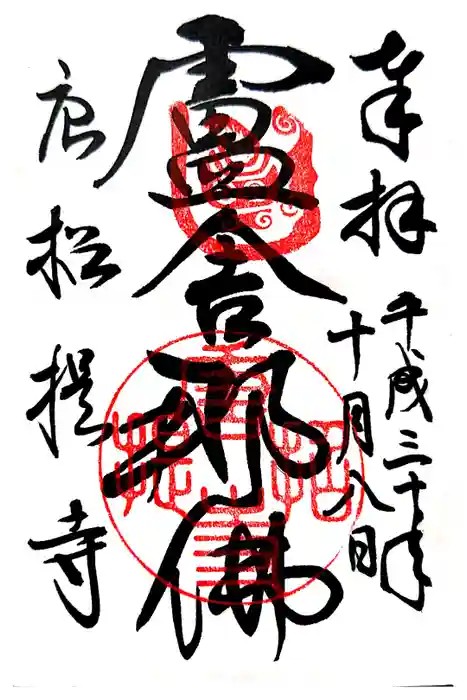 奉拝
平成三十年
十月八日
盧舎那佛
唐招提寺
唐招提寺